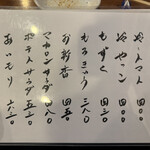 冷しトマト 四〇〇
冷やっこ 四〇〇
もずく 四三〇
もろきゅう 三八〇
お新香 四五〇
マカロニサラダ 四八〇
ポテトサラダ 五三〇